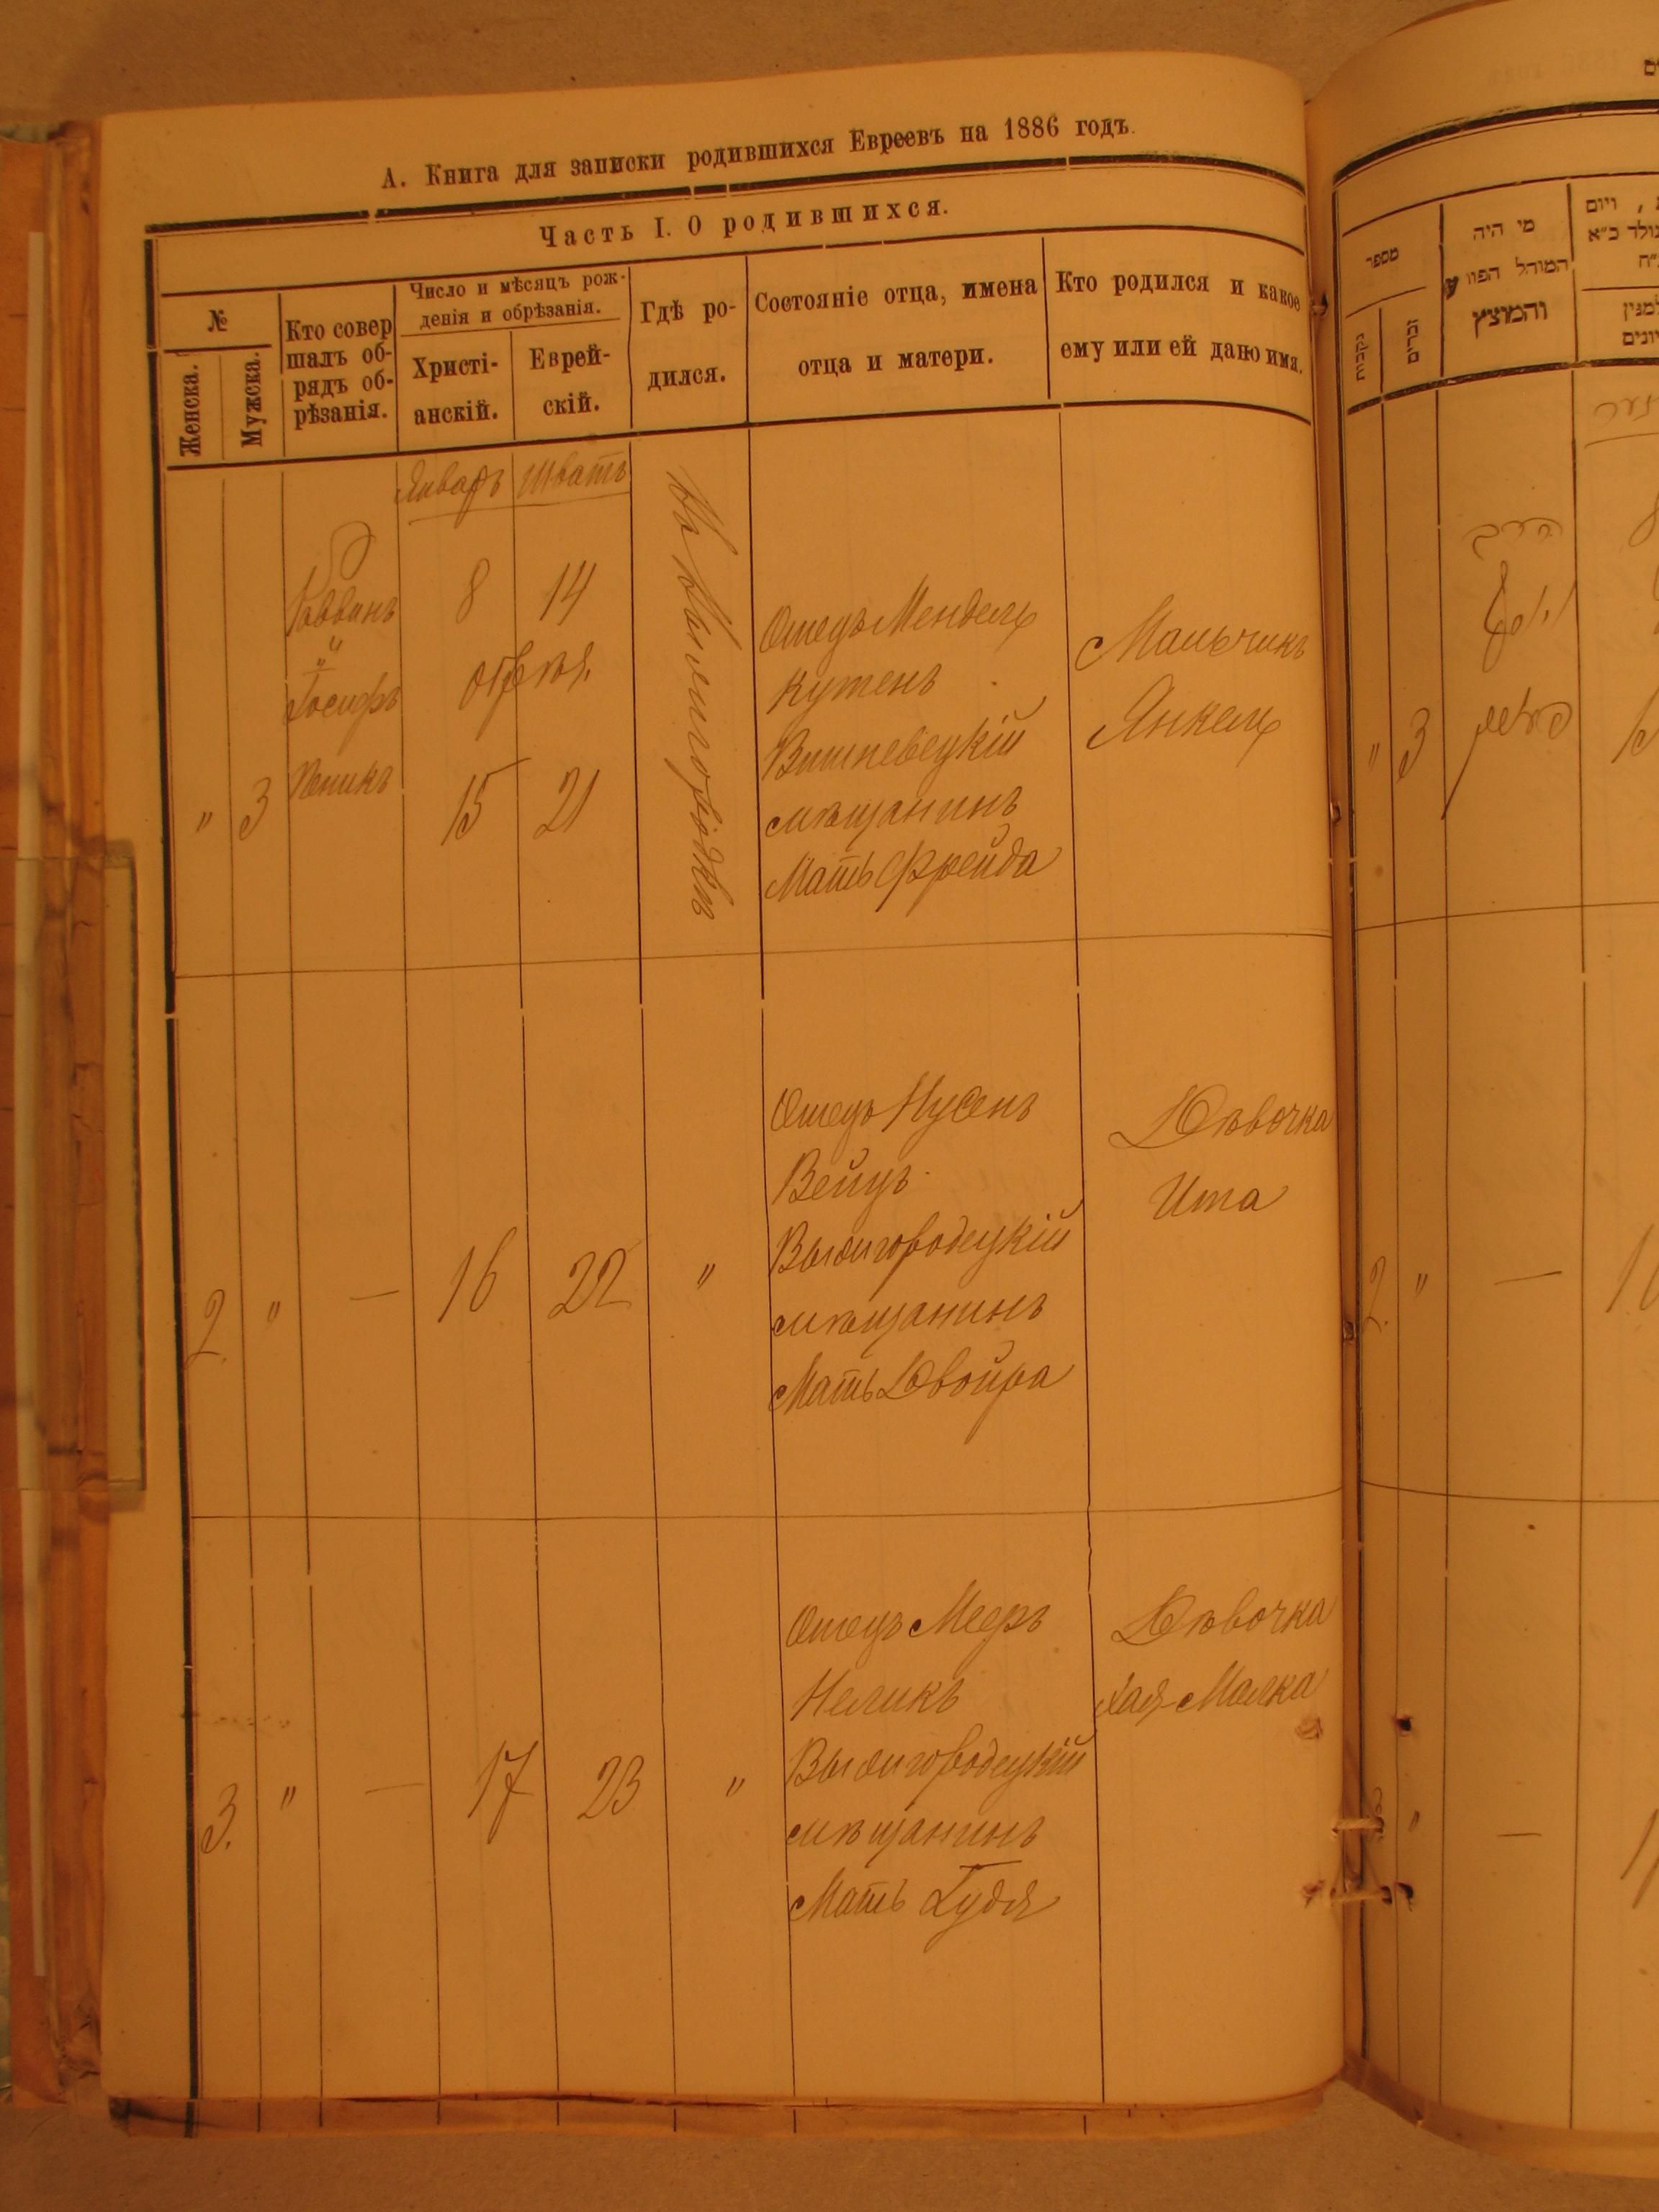 А. Книга для записки родившихся Евреевъ на 1886 годъ.
Часть I. О родившихся.
№
Женска.
Мужска.
Кто совер
шалъ об-
рядъ об-
рѣзанія.
Число и мѣсяцъ рож-
денія и обрѣзанія.
Христі-
анскій.
Еврей-
скій.
Гдѣ ро-
дился.
Состояніе отца, имена
отца и матери.
Кто родился и какое
ему или ей дано имя.
Январь Шватъ
" 3
Раввинъ
"
Іосифъ
8 14
обрѣз.
15 21
Отецъ Мендель
Кутенъ
Вишневецкій
мѣщанинъ
Мать Фрейда
Мальчикъ
Янкель
2. " — 16 22 "
Отецъ Нусенъ
Вейцъ
Вышгородецкій
мѣщанинъ
Мать Двойра
Дѣвочка
Ита
3. " — 17 23 "
Отецъ Мееръ
Неликъ
Вышгородецкій
мѣщанинъ
Мать Гудя
Дѣвочка
Хая-Малка
מספר
נקבות
זכרים
מי היה
המוהל הפורע
והמוצץ
, ויום
" 3
2. " —
" —